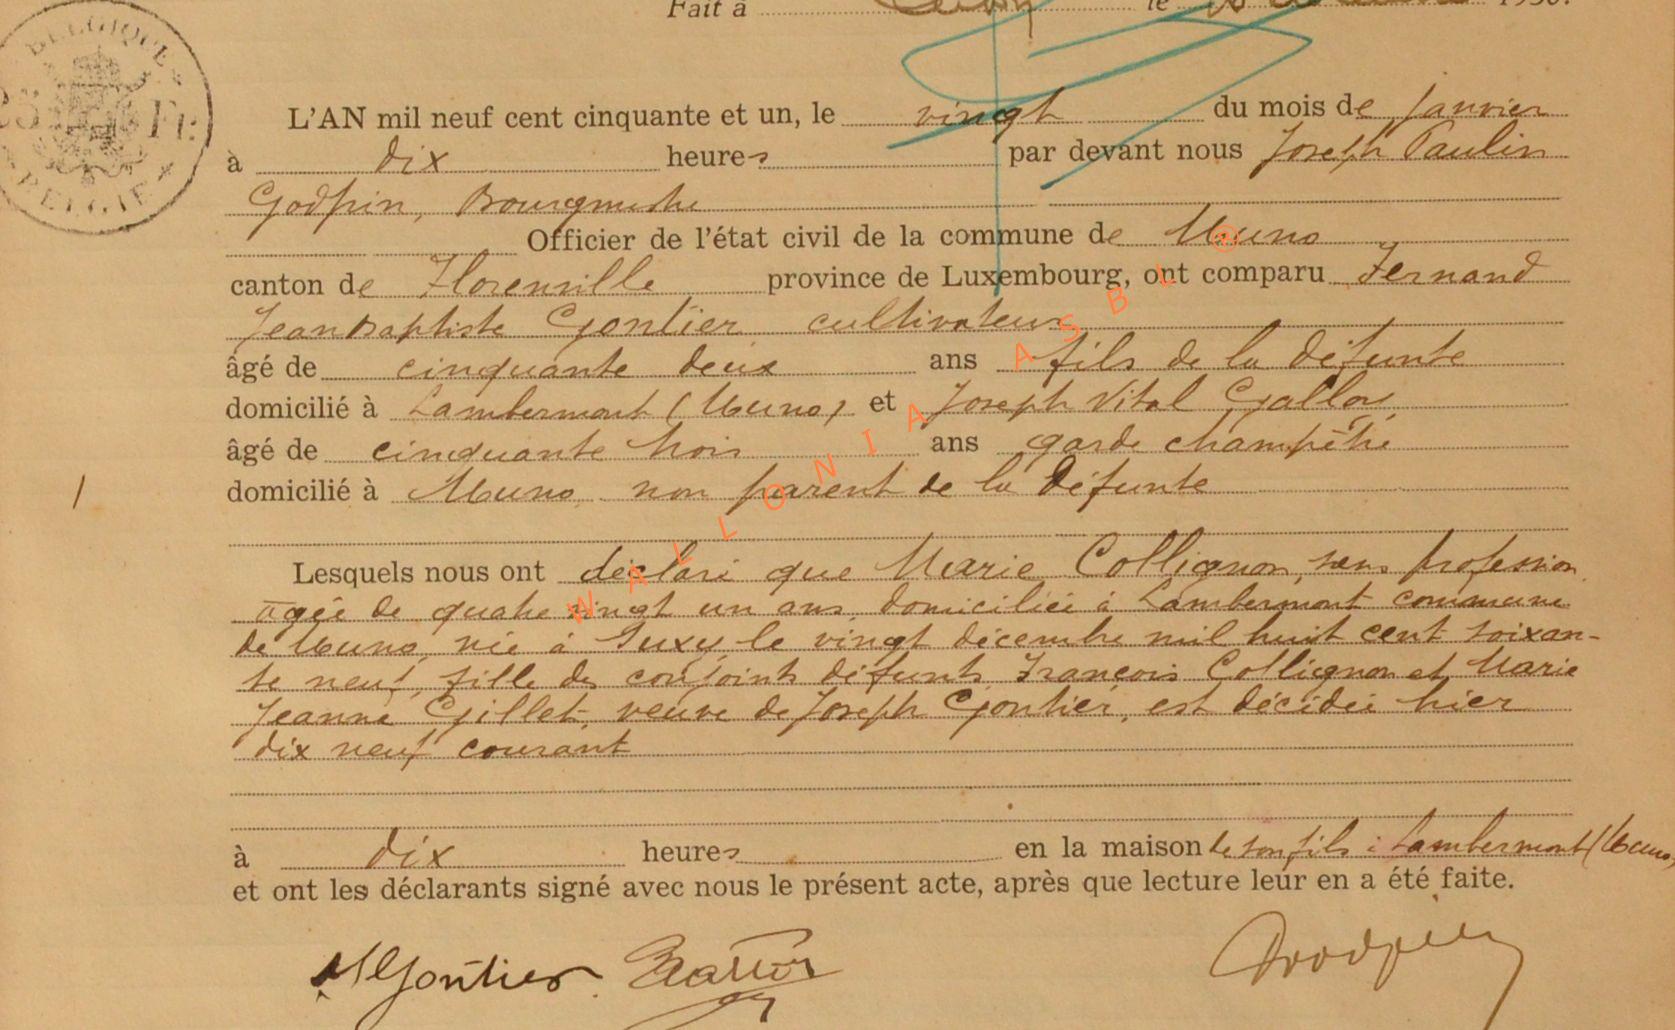 BELGIQUE
Fr.
BELGIE
Fait à le 1950.
L'AN mil neuf cent cinquante et un, le vingt du mois de janvier
à dix heures par devant nous Joseph Paulin
Godfrin, Bourgmestre
Officier de l'état civil de la commune de Muno
canton de Florenville province de Luxembourg, ont comparu Fernand
Jean Baptiste Gontier cultivateur
âgé de cinquante deux ans fils de la défunte
domicilié à Lambermont (Muno) et Joseph Vital Galloy
âgé de cinquante trois ans garde champêtre
1
domicilié à Muno non parent de la défunte
Lesquels nous ont déclaré que Marie Collignon, sans profession
agée de quatre vingt un ans, domiciliée à Lambermont commune
de Muno, née à Suxy le vingt décembre mil huit cent soixan-
te neuf, fille des conjoints défunts François Collignon et Marie
Jeanne Gillet, veuve de Joseph Gontier, est décédée hier
dix neuf courant
à dix heures en la maison de son fils à Lambermont (Muno)
et ont les déclarants signé avec nous le présent acte, après que lecture leur en a été faite.
Gontier Godfrin
WALLONIA ASBL